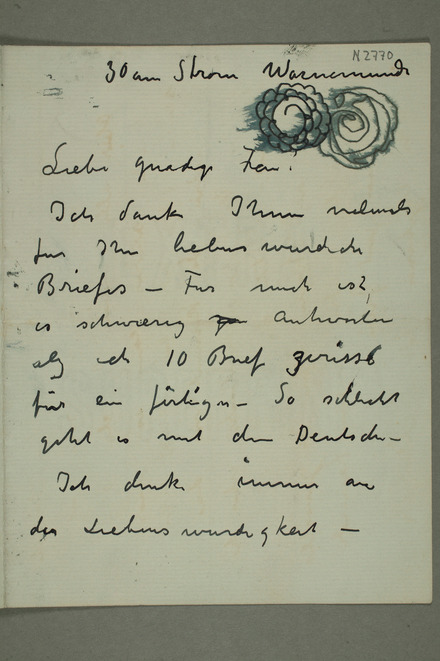 N 2770
30 am Strom Warnemunde
Liebe gnadige Frau!
Ich danke Ihnen vielmals
fur Ihre liebenswurdiche
Briefes — Fur mich ist,
es schwierig zu Antworten
ich 10 Brief
für ein fertigen — So schlecht
geht es mit dem Deutsche —
Ich denke immer an
die Liebenswurdigkeit —